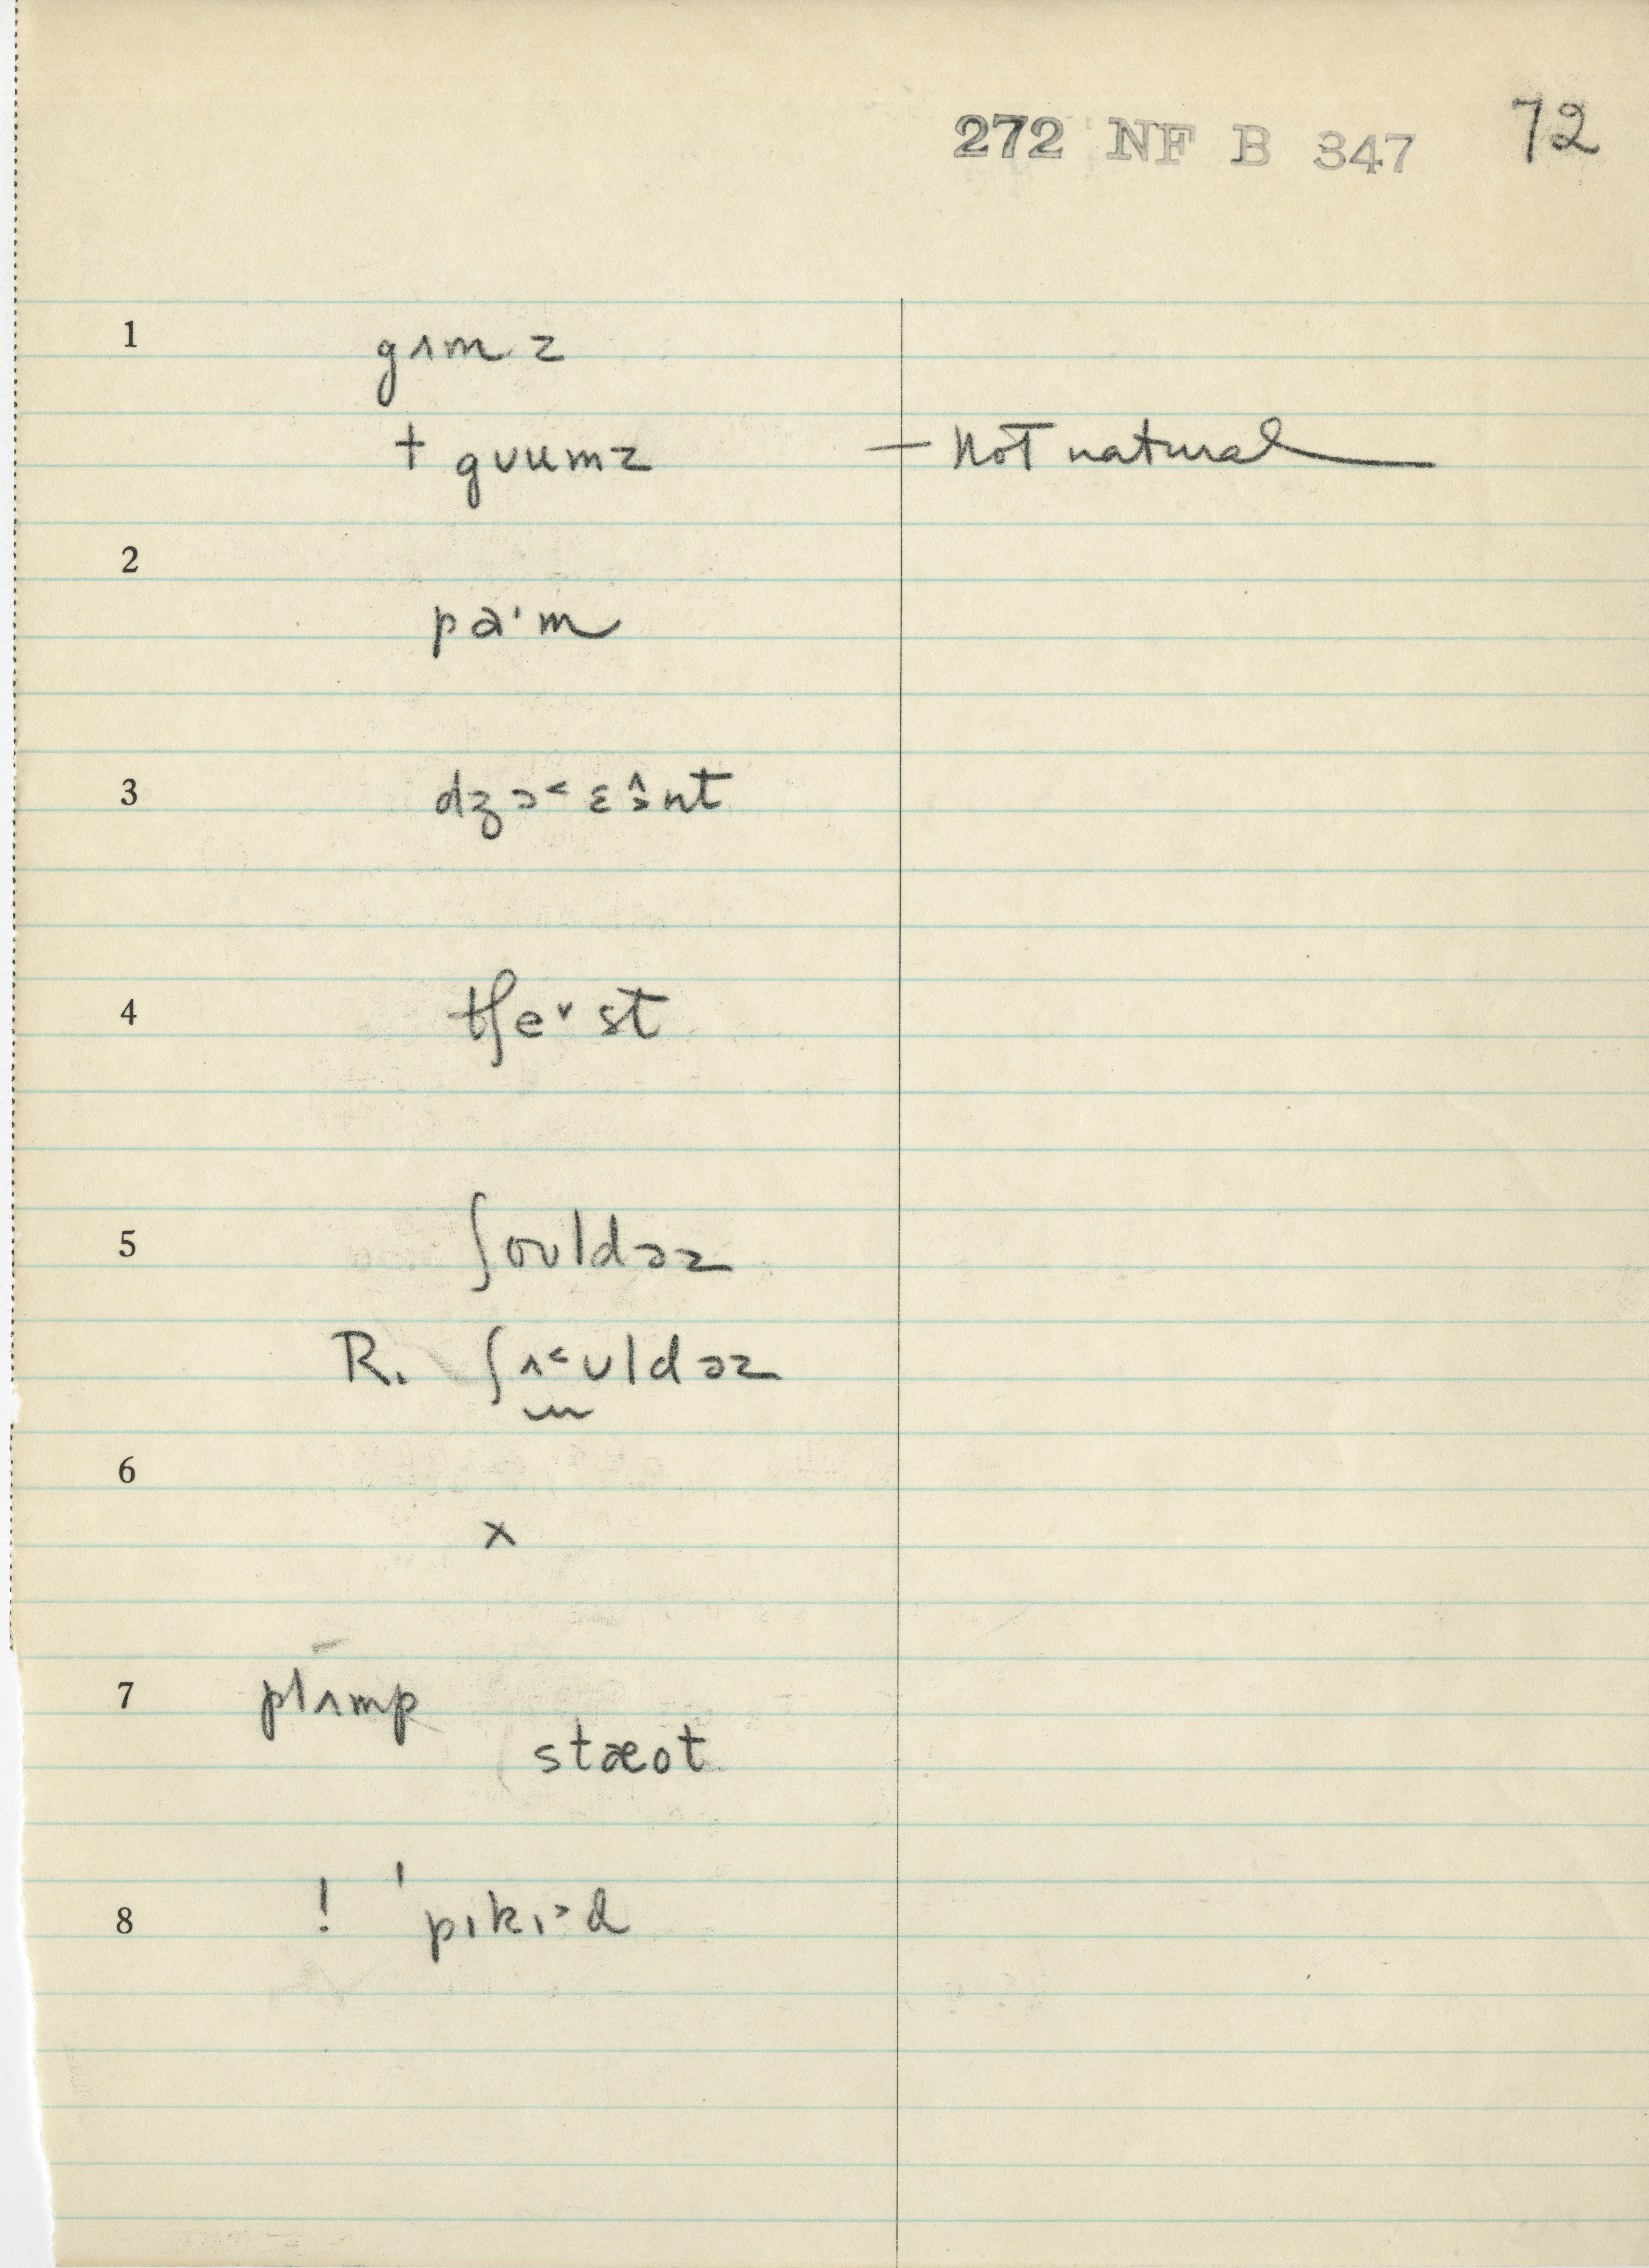 272 NF B 347 72
1 gʌmz
† gʊumz — Not natural
2
pa'm
3 dʒɔ˂ɛə̂nt
4 tʃe˅st
5 ʃoʊldəz
R. ʃʌ˂ʊldəz
6
x
7 plʌmp
stæot
8 ! 'pɪkɪ˃d